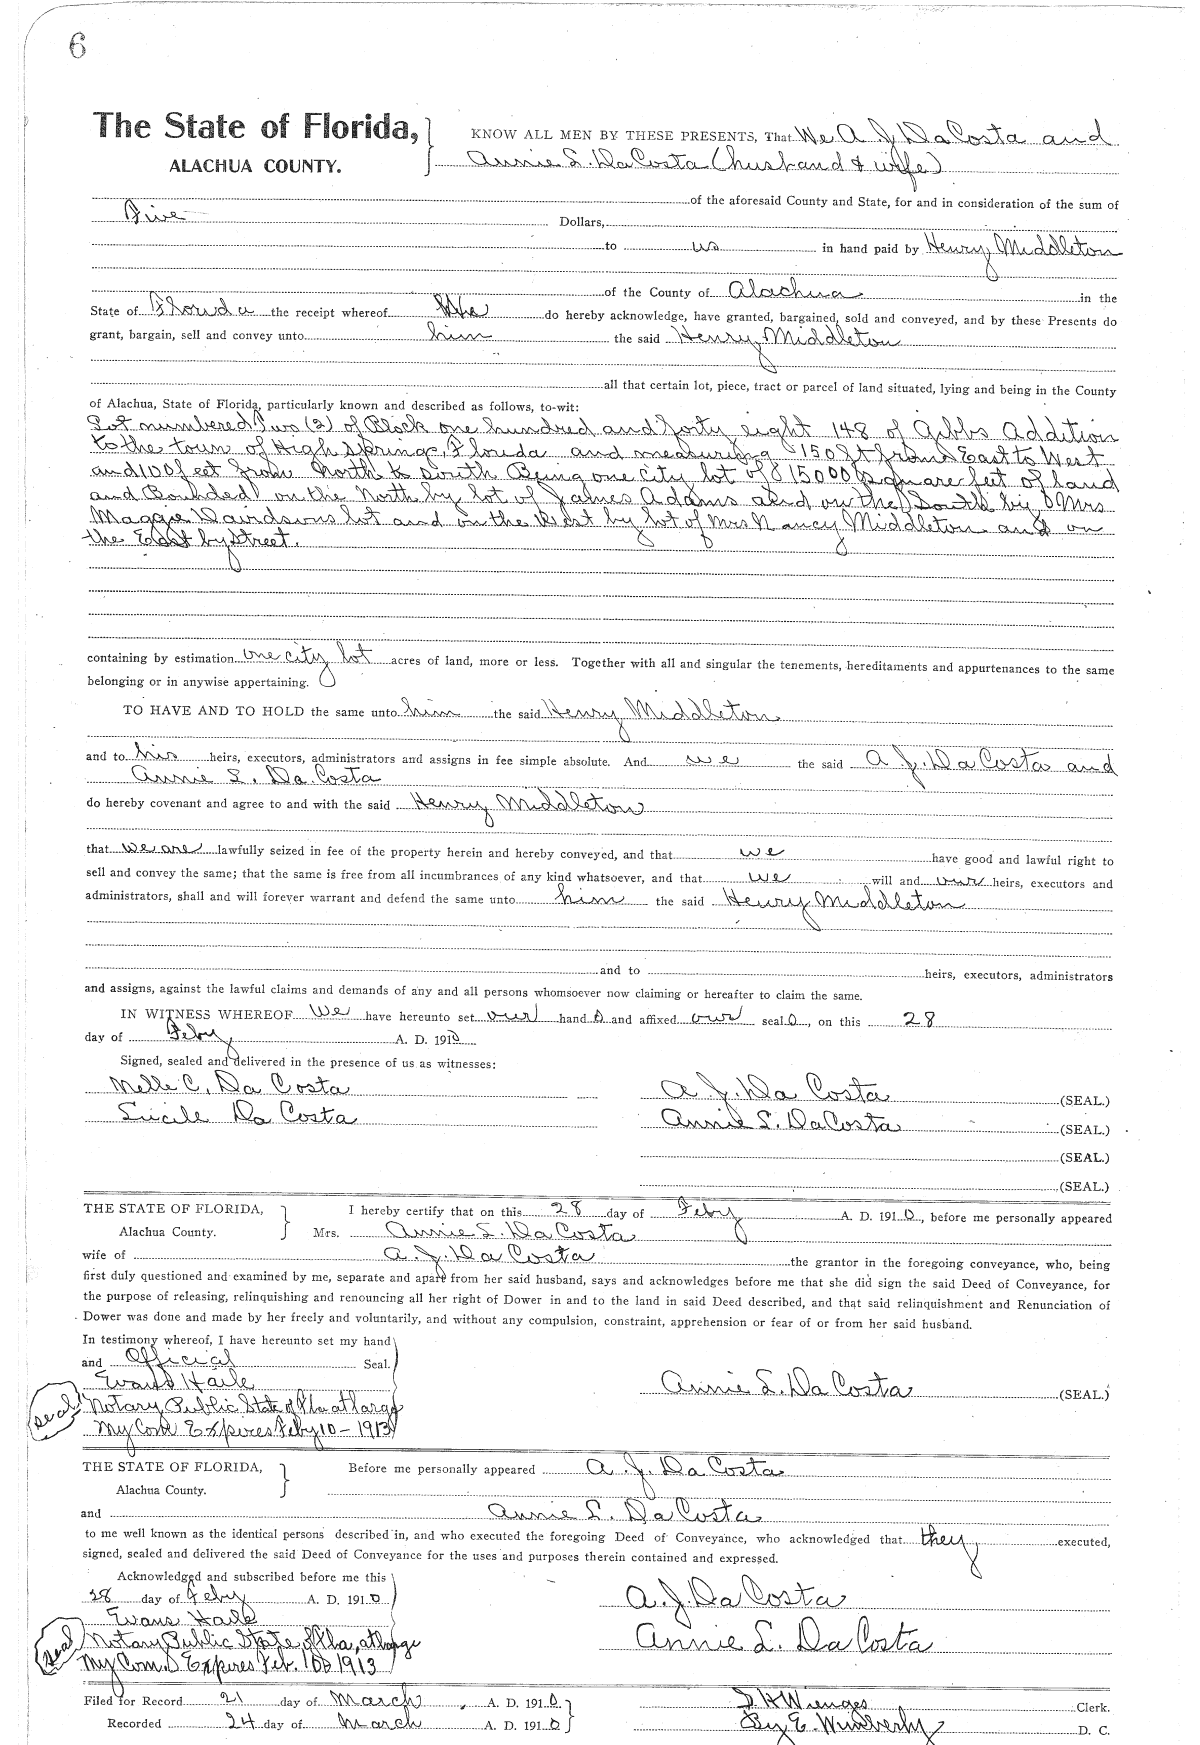 6
The State of Florida, KNOW ALL MEN BY THESE PRESENTS, That We A. J. DaCosta and
ALACHUA COUNTY. Annie L. DaCosta (husband & wife)
of the aforesaid County and State, for and in consideration of the sum of
Five Dollars,
to us in hand paid by Henry Middleton
of the County of Alachua in the
State of Florida the receipt whereof do hereby acknowledge, have granted, bargained, sold and conveyed, and by these Presents do
grant, bargain, sell and convey unto him the said Henry Middleton
all that certain lot, piece, tract or parcel of land situated, lying and being in the County
of Alachua, State of Florida, particularly known and described as follows, to-wit:
Lot numbered Two (2) of Block one hundred and forty eight 148 of Gibbs Addition
to the town of High Springs, Florida and measuring 150 ft from East to West
and 100 feet from North to South Being one city lot of 15000 square feet of land
and Bounded on the North by lot of James Adams and on the South by Mrs
Maggie Davidsons lot and on the West by lot of Mrs Nancy Middleton and on
the East by Street.
containing by estimation one city lot acres of land, more or less. Together with all and singular the tenements, hereditaments and appurtenances to the same
belonging or in anywise appertaining.
TO HAVE AND TO HOLD the same unto him the said Henry Middleton
and to his heirs, executors, administrators and assigns in fee simple absolute. And we the said A. J. DaCosta and
Annie L. Da Costa
do hereby covenant and agree to and with the said Henry Middleton
that we are lawfully seized in fee of the property herein and hereby conveyed, and that we have good and lawful right to
sell and convey the same; that the same is free from all incumbrances of any kind whatsoever, and that we will and our heirs, executors and
administrators, shall and will forever warrant and defend the same unto him the said Henry Middleton
and to heirs, executors, administrators
and assigns, against the lawful claims and demands of any and all persons whomsoever now claiming or hereafter to claim the same.
IN WITNESS WHEREOF We have hereunto set our hand s and affixed our seal s, on this 28
day of Feby A. D. 1910
Signed, sealed and delivered in the presence of us as witnesses:
Nelle C. Da Costa A. J. Da Costa (SEAL.)
Lucile Da Costa Annie L. DaCosta (SEAL.)
(SEAL.)
(SEAL.)
THE STATE OF FLORIDA, I hereby certify that on this 28 day of Feby A. D. 1910, before me personally appeared
Alachua County. Mrs. Annie L. DaCosta
wife of A. J. Da Costa the grantor in the foregoing conveyance, who, being
first duly questioned and examined by me, separate and apart from her said husband, says and acknowledges before me that she did sign the said Deed of Conveyance, for
the purpose of releasing, relinquishing and renouncing all her right of Dower in and to the land in said Deed described, and that said relinquishment and Renunciation of
Dower was done and made by her freely and voluntarily, and without any compulsion, constraint, apprehension or fear of or from her said husband.
In testimony whereof, I have hereunto set my hand
and Official Seal.
Evans Haile Annie L. DaCosta (SEAL.)
seal Notary Public State of Fla at large
My Com Expires Feby 10 - 1913
THE STATE OF FLORIDA, Before me personally appeared A. J. Da Costa
Alachua County.
and Annie L. Da Costa
to me well known as the identical persons described in, and who executed the foregoing Deed of Conveyance, who acknowledged that they executed,
signed, sealed and delivered the said Deed of Conveyance for the uses and purposes therein contained and expressed.
Acknowledged and subscribed before me this
28 day of Feby A. D. 1910 A. J. Da Costa
Evans Haile
seal Notary Public State of Fla, at large Annie L. Da Costa
My Com. Expires Feb. 10 1913
Filed for Record 21 day of March, A. D. 1910. S. H. Wienges Clerk.
Recorded 24 day of March A. D. 1910 By E. Wimberly D. C.